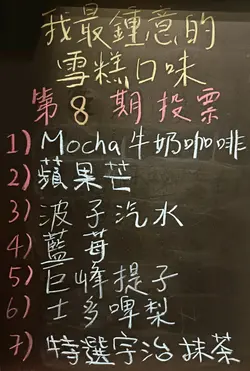 我最鍾意的
雪糕口味
第8期投票
1) Mocha牛奶咖啡
2) 蘋果芒
3) 波子汽水
4) 藍莓
5) 巨峰提子
6) 士多啤梨
7) 特選宇治抹茶